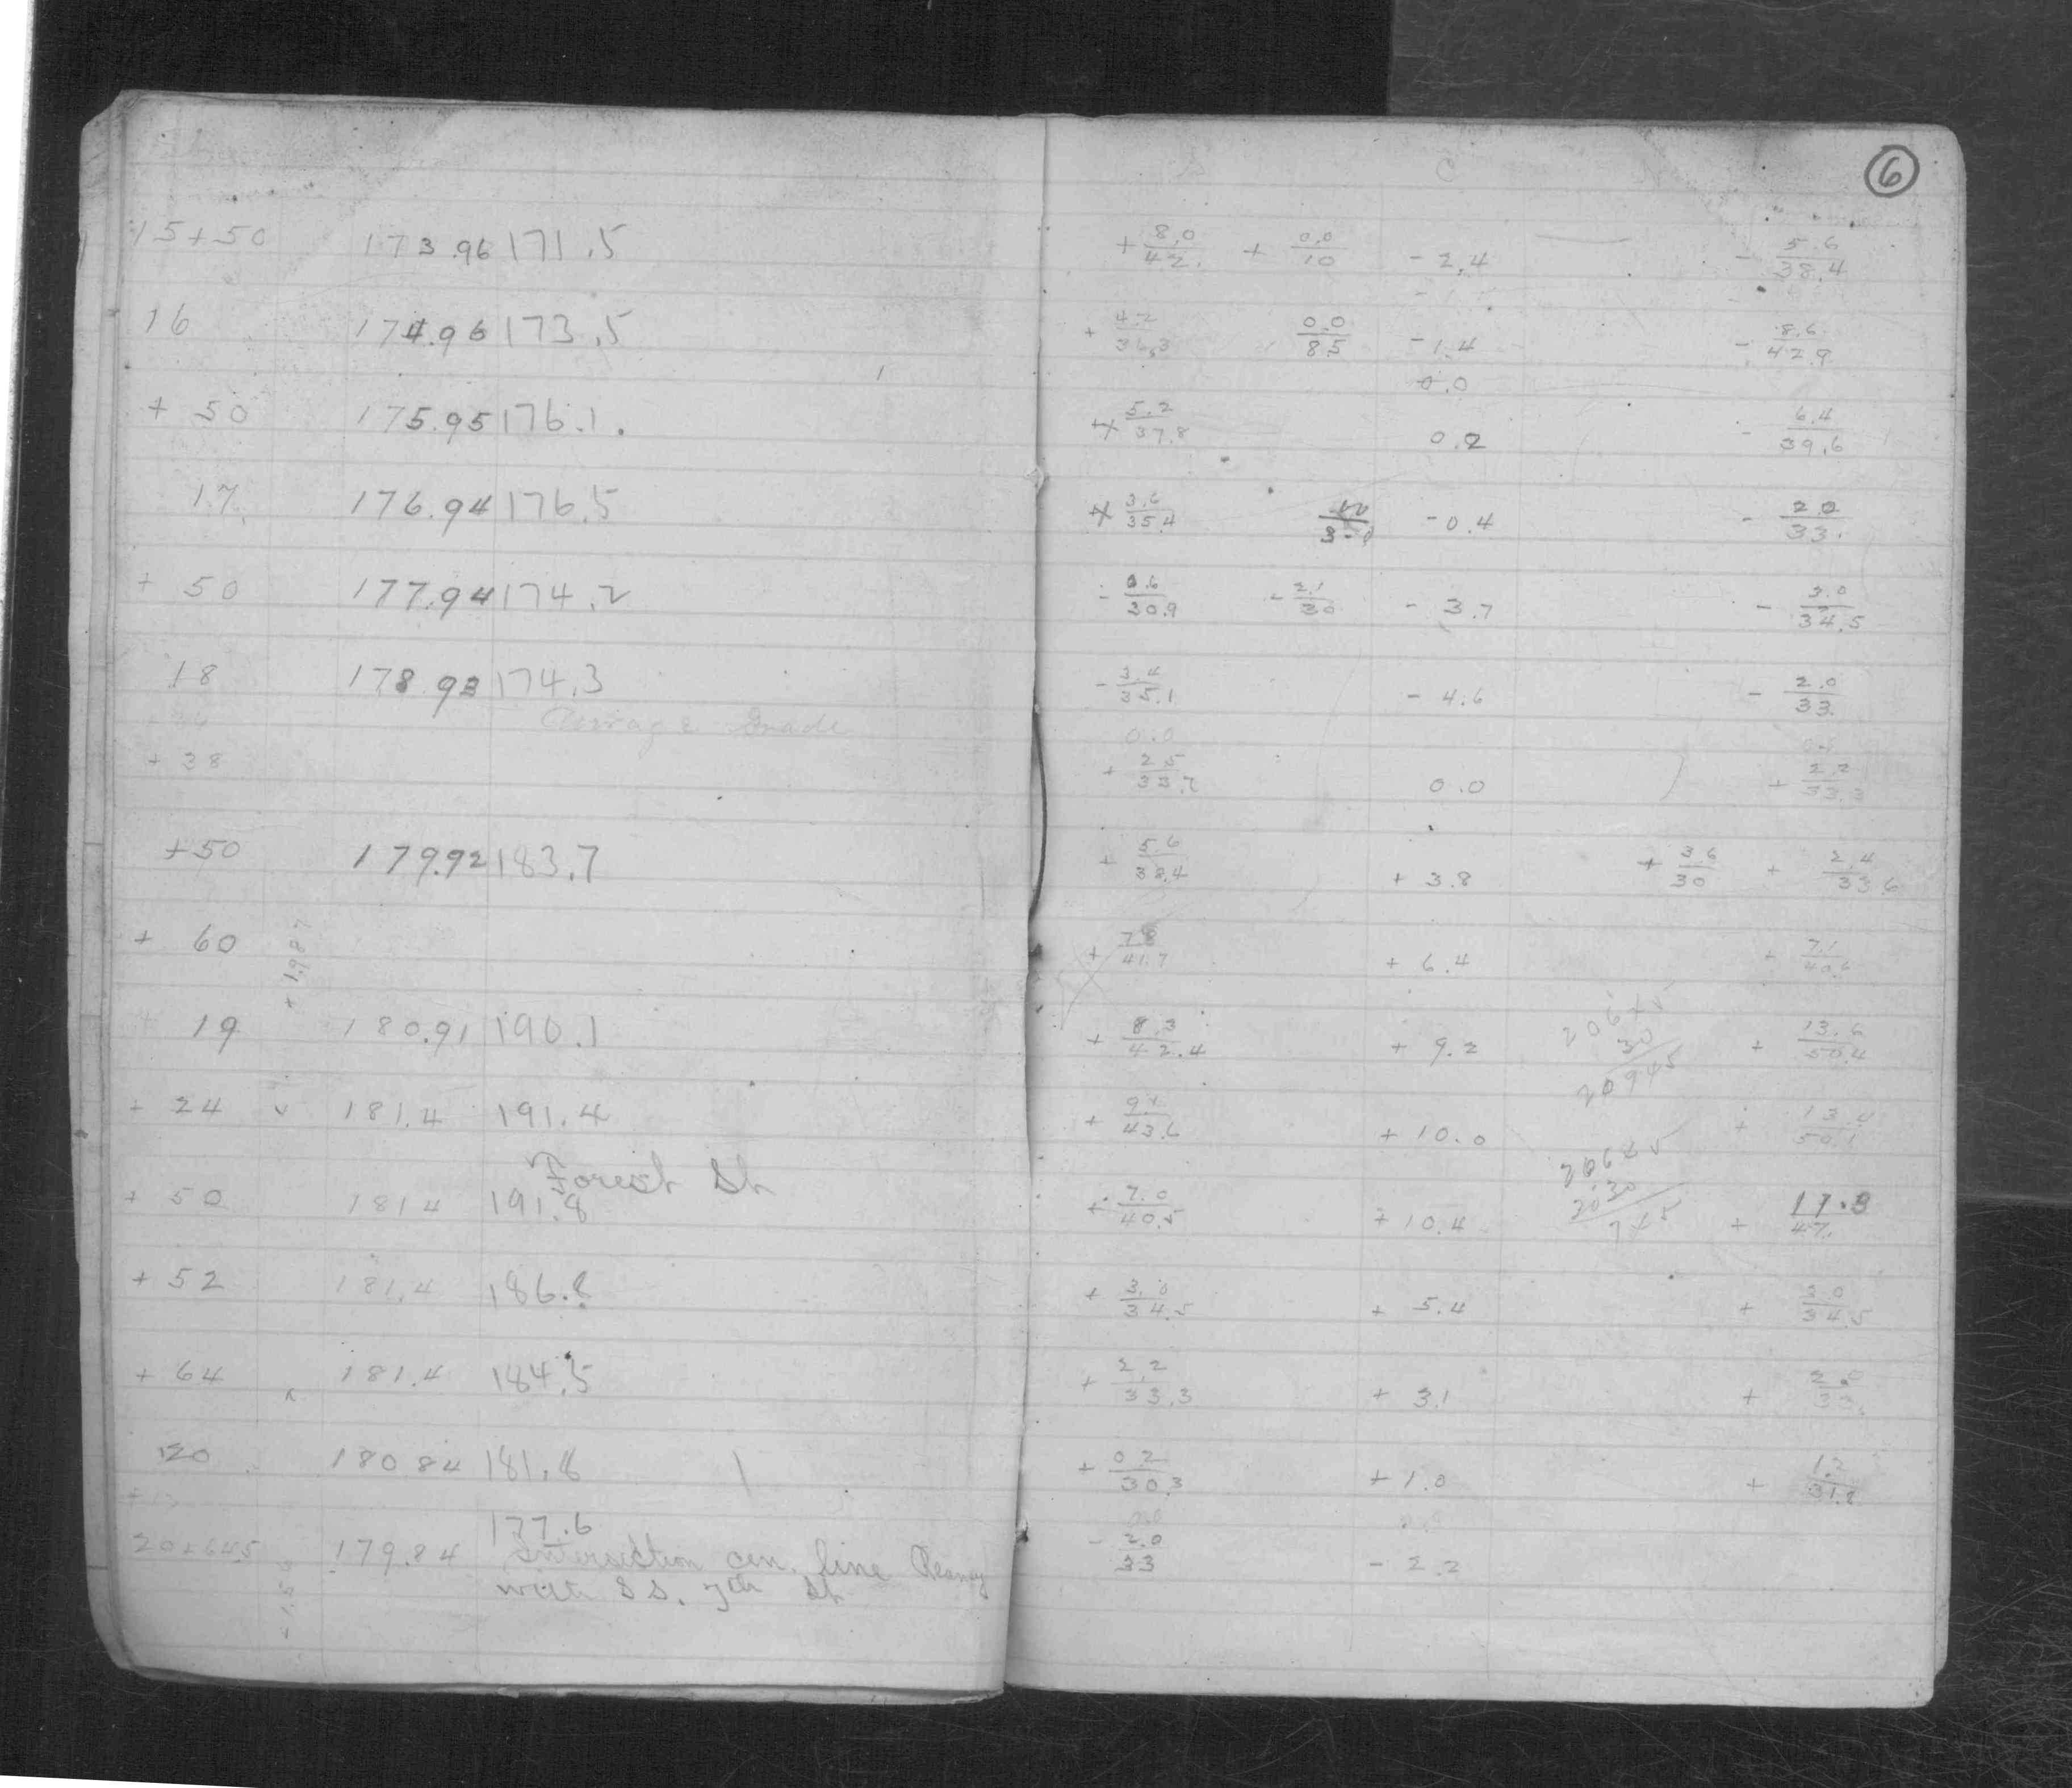 6
15+50 173.96 171.5 + 8.0/42. + 0.0/10 - 2.4 - 5.6/38.4
16 174.96 173.5 + 4.2/36.3 0.0/8.5 - 1.4 - 8.6/42.9
0.0
+ 50 175.95 176.1. + 5.2/37.8 0.2 - 6.4/39.6
17. 176.94 176.5 + 3.6/35.4 - 0.4 - 2.0/33.
+ 50 177.94 174.2 - 0.6/30.9 - 2.1/30 - 3.7 - 3.0/34.5
18 178.93 174.3 - 3.4/35.1 - 4.6 - 2.0/33
Average Grade 0.0
+ 38 + 2.5/33.7 0.0 + 2.2/33.3
+50 179.92 183.7 + 5.6/38.4 + 3.8 + 3.6/30 + 2.4/33.6
+ 60 + 7.8/41.7 + 6.4 + 7.1/40.6
+ 1.987
+ 19 180.91 190.1 + 8.3/42.4 + 9.2 + 13.6/50.4
30
20945
+ 24 181.4 191.4 + 9.1/43.6 + 10.0 + 13.4/50.1
Forest St
+ 50 181.4 191.8 + 7.0/40.5 + 10.4 + 11.3/47.
+ 52 181.4 186.8 + 3.0/34.5 + 5.4 + 3.0/34.5
+ 64 181.4 184.5 + 2.2/33.3 + 3.1 + 2.0/33.
20 180.84 181.8 + 0.2/30.3 + 1.0 + 1.2/31.8
177.6
20+64.5 179.84 Intersection cen. line Reaney - 2.0/33 - 2.2
with S S. 7th St